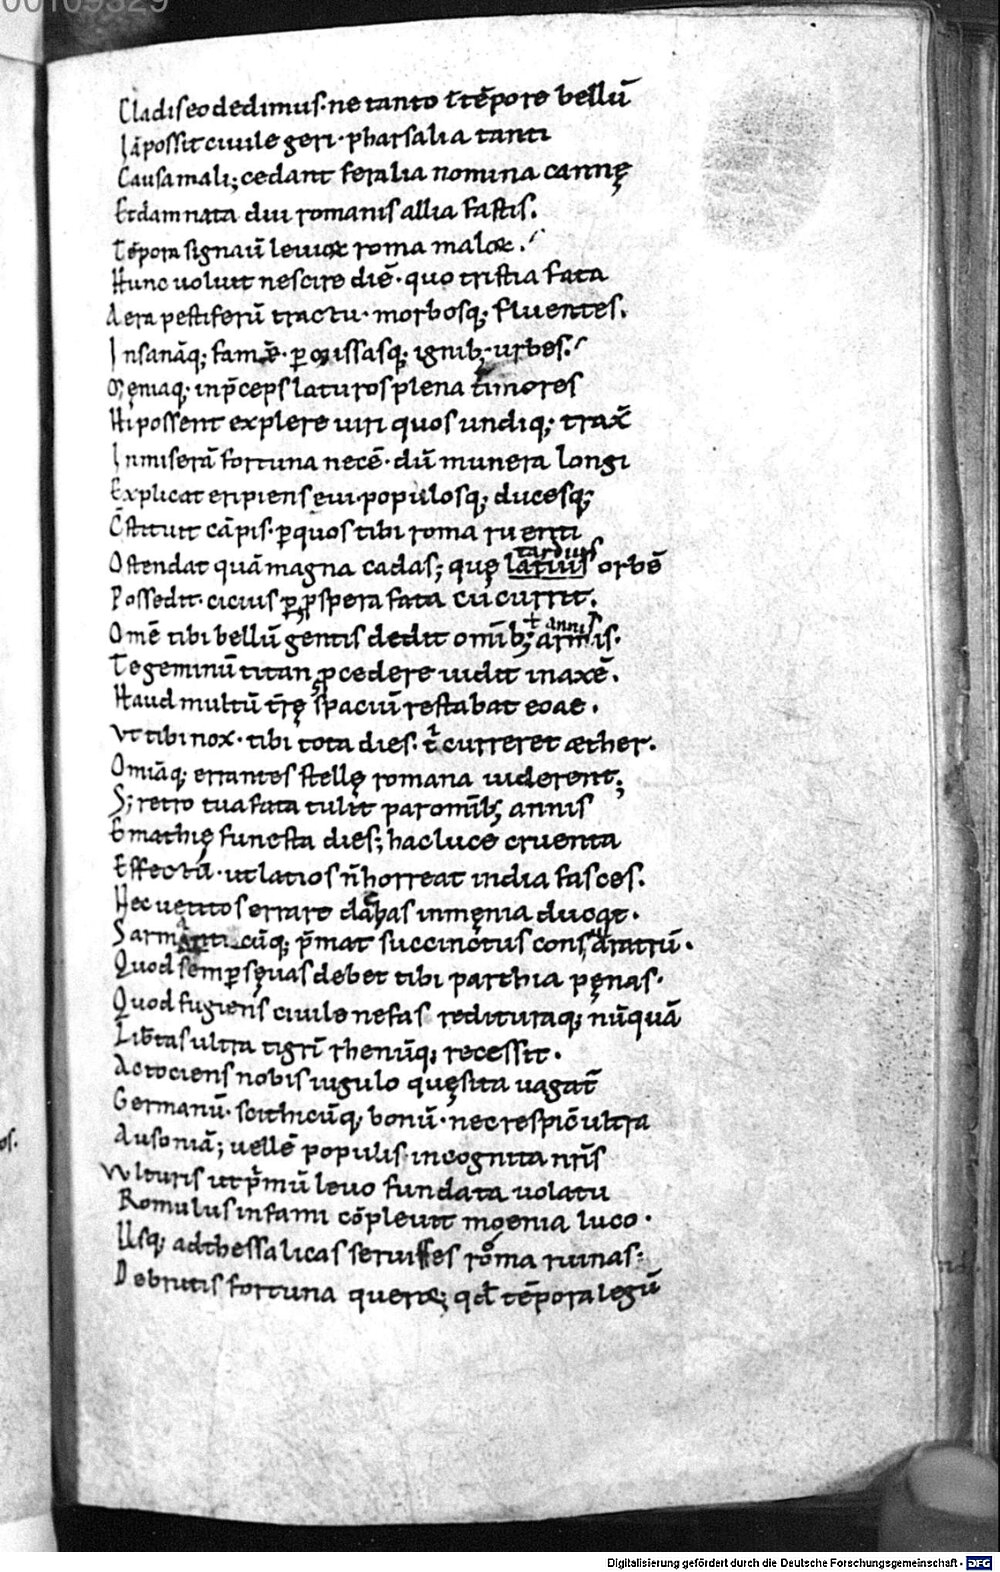 00109329
Cladis eo dedimus· ne tanto ĩ tẽpore bellũ
Iã possit ciuile geri· pharsalia tanti
Causa mali; cedant feralia nomina cannę
Et damnata diu romanis allia fastis.
Tẽpora signauĩ leuioꝝ roma maloꝝ.
Hunc uoluit nescire diẽ· quo tristia fata
Aera pestiferũ tractu· morbosq; fluentes.
Insanãq; famẽ· ꝑmissasq; ignib; urbes.
Męniaq· in p̃ceps laturos plena timores
Hi possent explere uiri quos undiq; trax̃
In miserã fortuna necẽ· dũ munera longi
Explicat eripiens eui· populosq; ducesq;
C̃stituit cãpis· ꝑ quos tibi roma ruenti
tardius
Ostendat quã magna cadas; quę latius orbẽ
Possedit· cicius ꝑ ꝓspera fata cucurrit.
ł annis
Omẽ tibi bellũ gentis dedit omĩb; armis.
Te geminũ titan ꝓcedere uidit in axẽ.
Haud multũ t̃rę spaciũ restabat eoae.
Vt tibi nox· tibi tota dies· t̾ curreret æther.
Omiãq; errantes stellę romana uiderent;
S; retro tua fata tulit par omĩb; annis
Emathię funesta dies; hac luce cruenta
Effectũ· ut latios ñ horreat india fasces.
Nec uetitos errare dahas in męnia ducat·
Sarmaticũq; p̃mat succinctus consul aratrũ·
Quod semꝑ sęuas debet tibi parthia pęnas·
Quod fugiens ciuile nefas redituraq; nũquã
Lib̃tas ultra tigrĩ rhenũq; recessit·
Ac tociens nobis iugulo quęsita uagat̃
Germanũ· scithicũq; bonũ· nec respic̃ ultra
Ausoniã; uellẽ populis incognita nr̃is
Vulturis ut p̾mũ leuo fundata uolatu
Romulus infami cõpleuit moenia luco·
Usq; ad thessalicas seruisses roma ruinas·
De brutis fortuna queror; qd̾ tẽpora legũ
os.
Digitalisierung gefördert durch die Deutsche Forschungsgemeinschaft · DFG